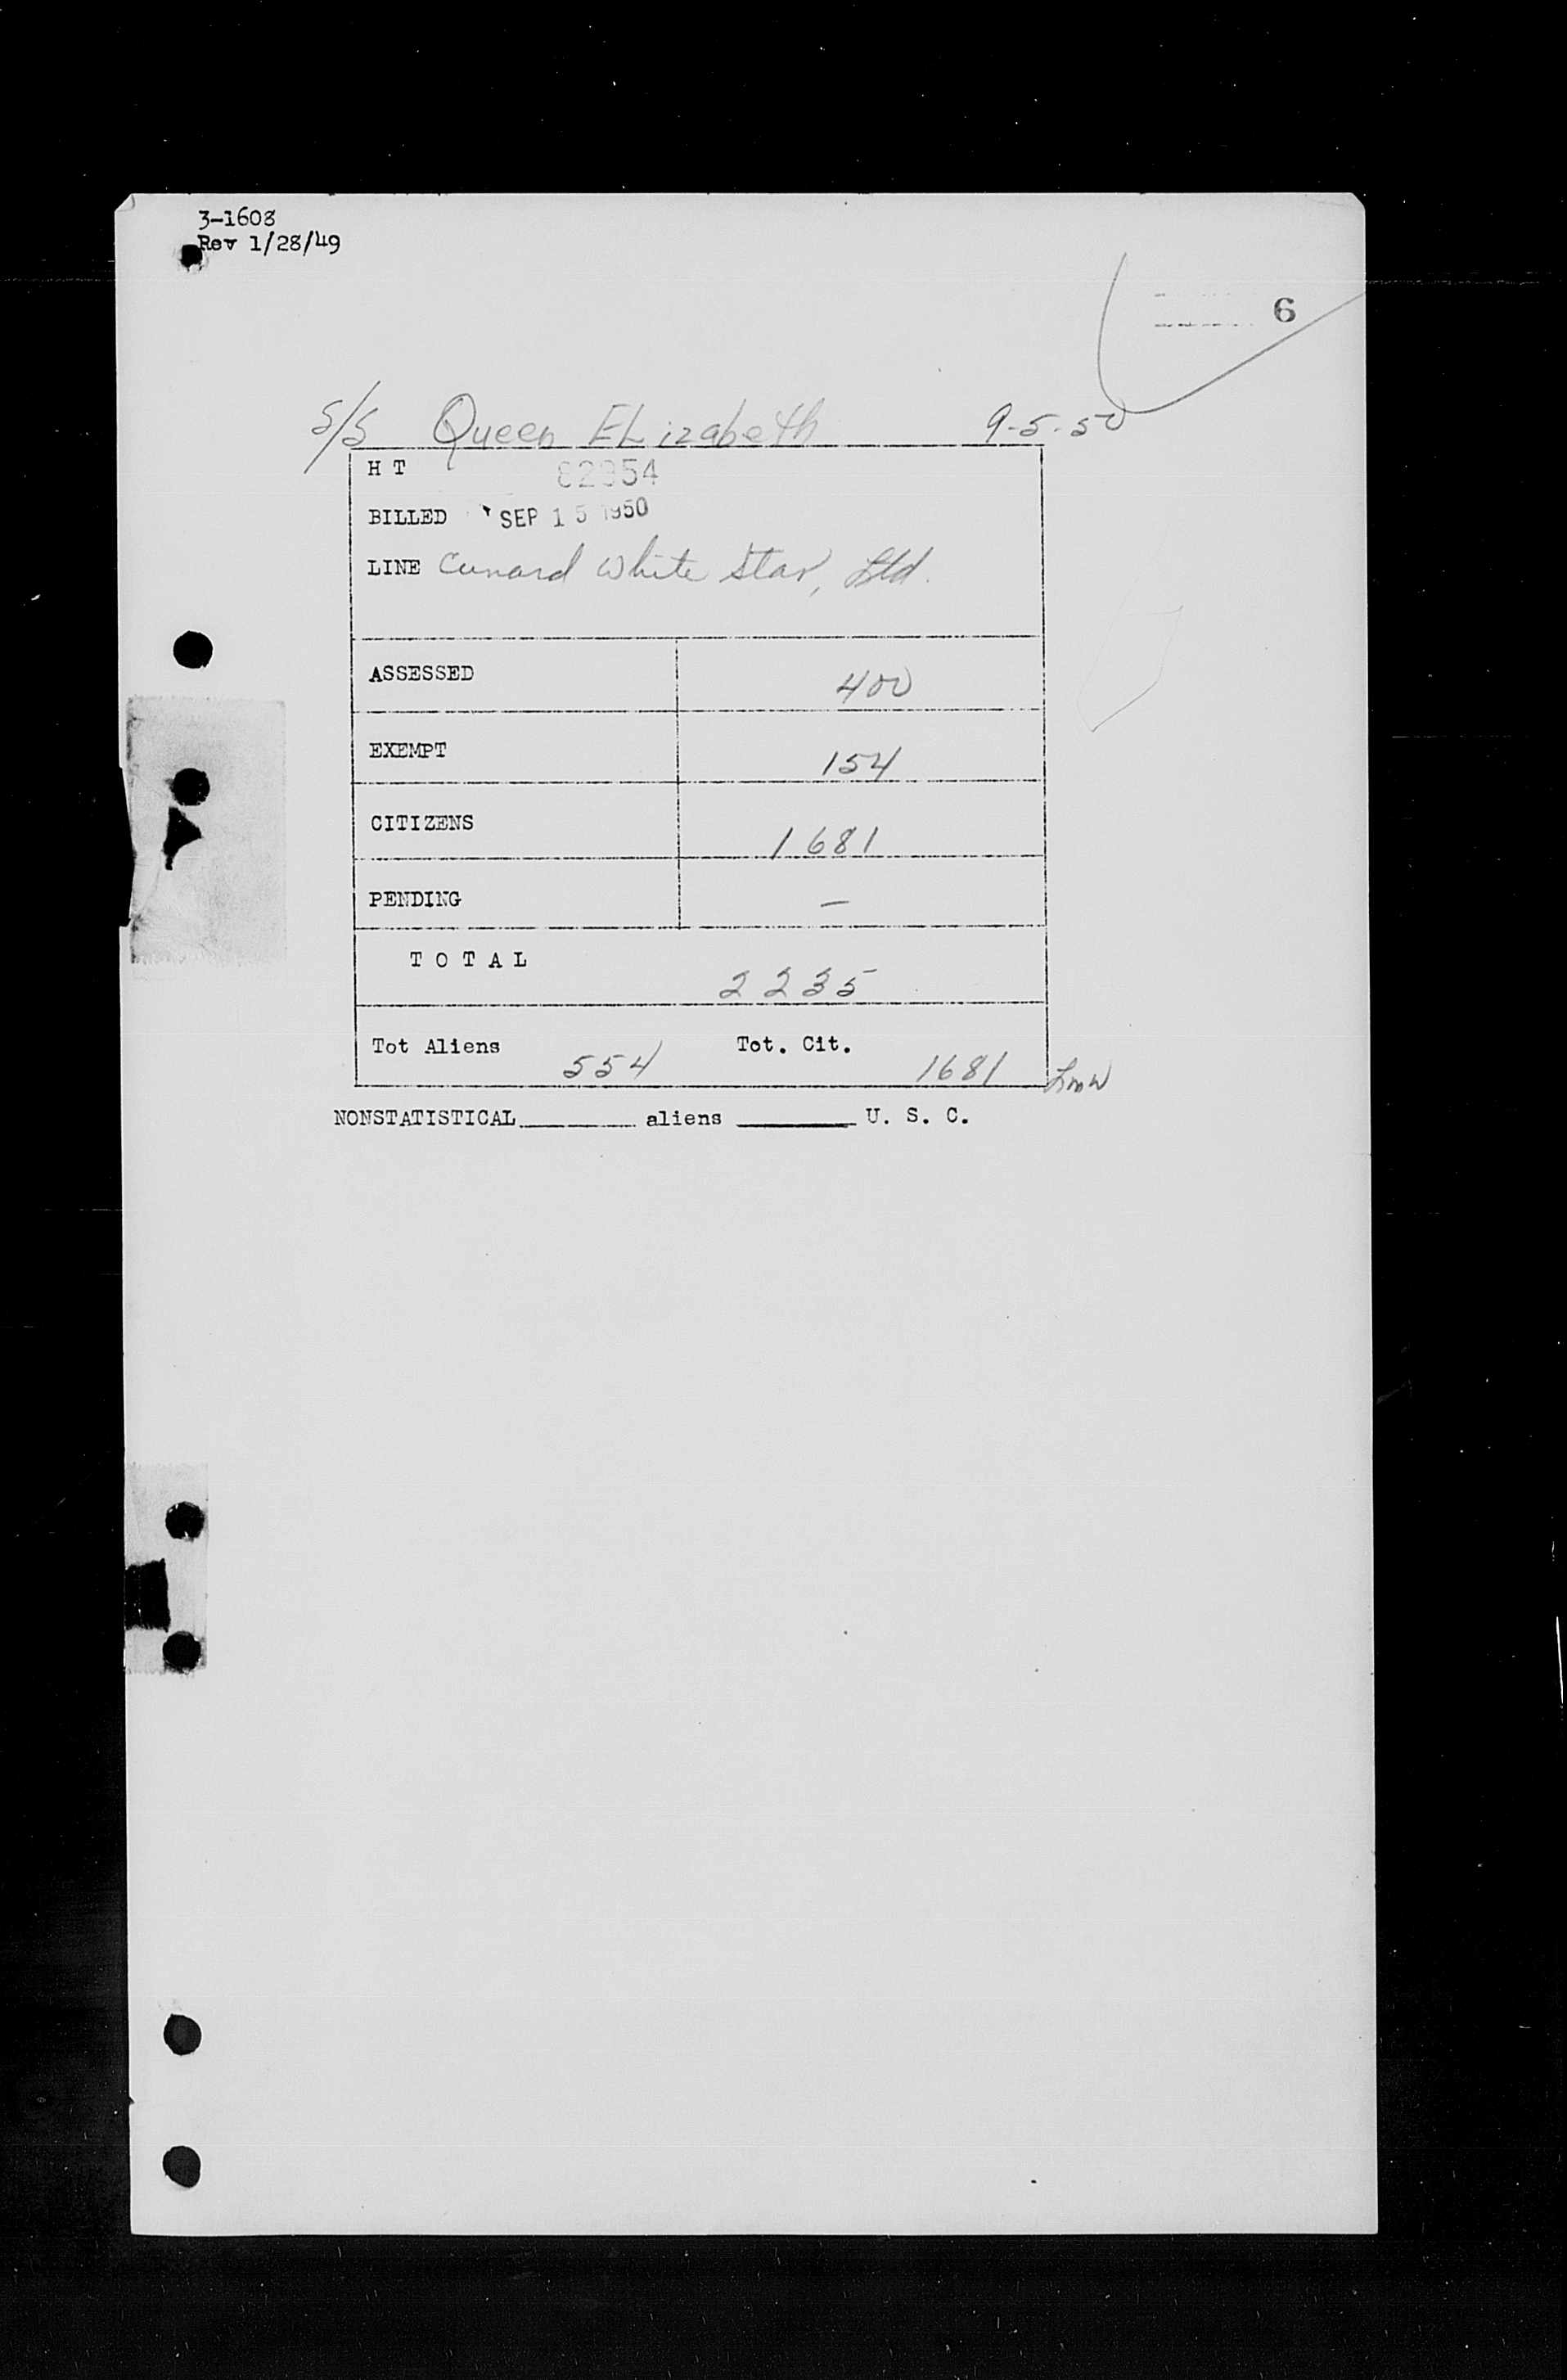 3-1608
Rev 1/28/49
6
S/S Queen ELizabeth 9-5-50
H T
BILLED SEP 15 1950
LINE Cunard White Star, Ltd.
ASSESSED 400
EXEMPT 154
CITIZENS 1681
PENDING —
T O T A L 2235
Tot Aliens 554 Tot. Cit. 1681
NONSTATISTICAL________ aliens ________ U. S. C.